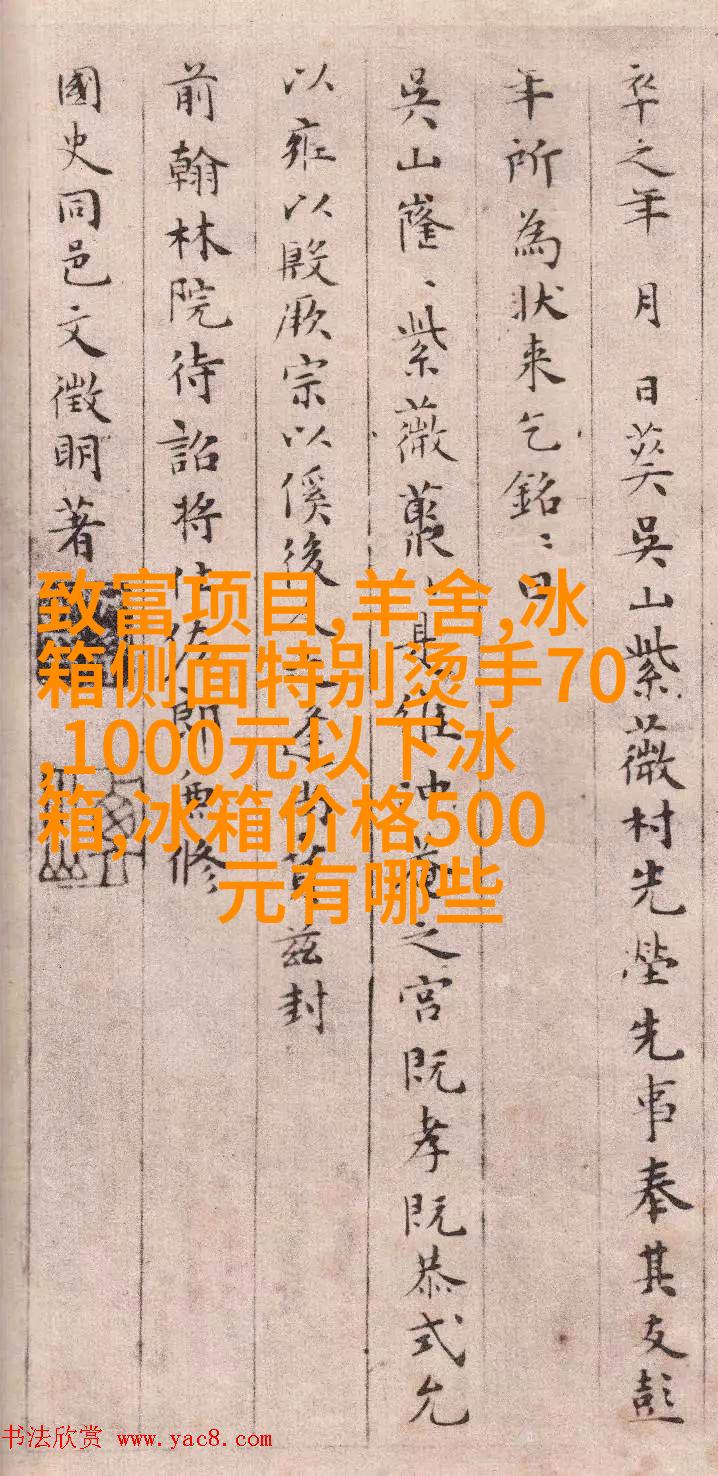 卒之年 月 日葬吳山紫薇村先塋先事奉其友彭
年所為狀来乞銘〻曰
吳山窿〻紫薇叢
之宮既孝既恭式允
以雍以殷厥宗以傒後
兹封
前翰林院待詔將仕佐郎兼修
國史同邑文徵明著
致富项目,羊舍,冰
箱侧面特别烫手70
,1000元以下冰
箱,冰箱价格500
元有哪些
书法欣赏 www.yac8.com